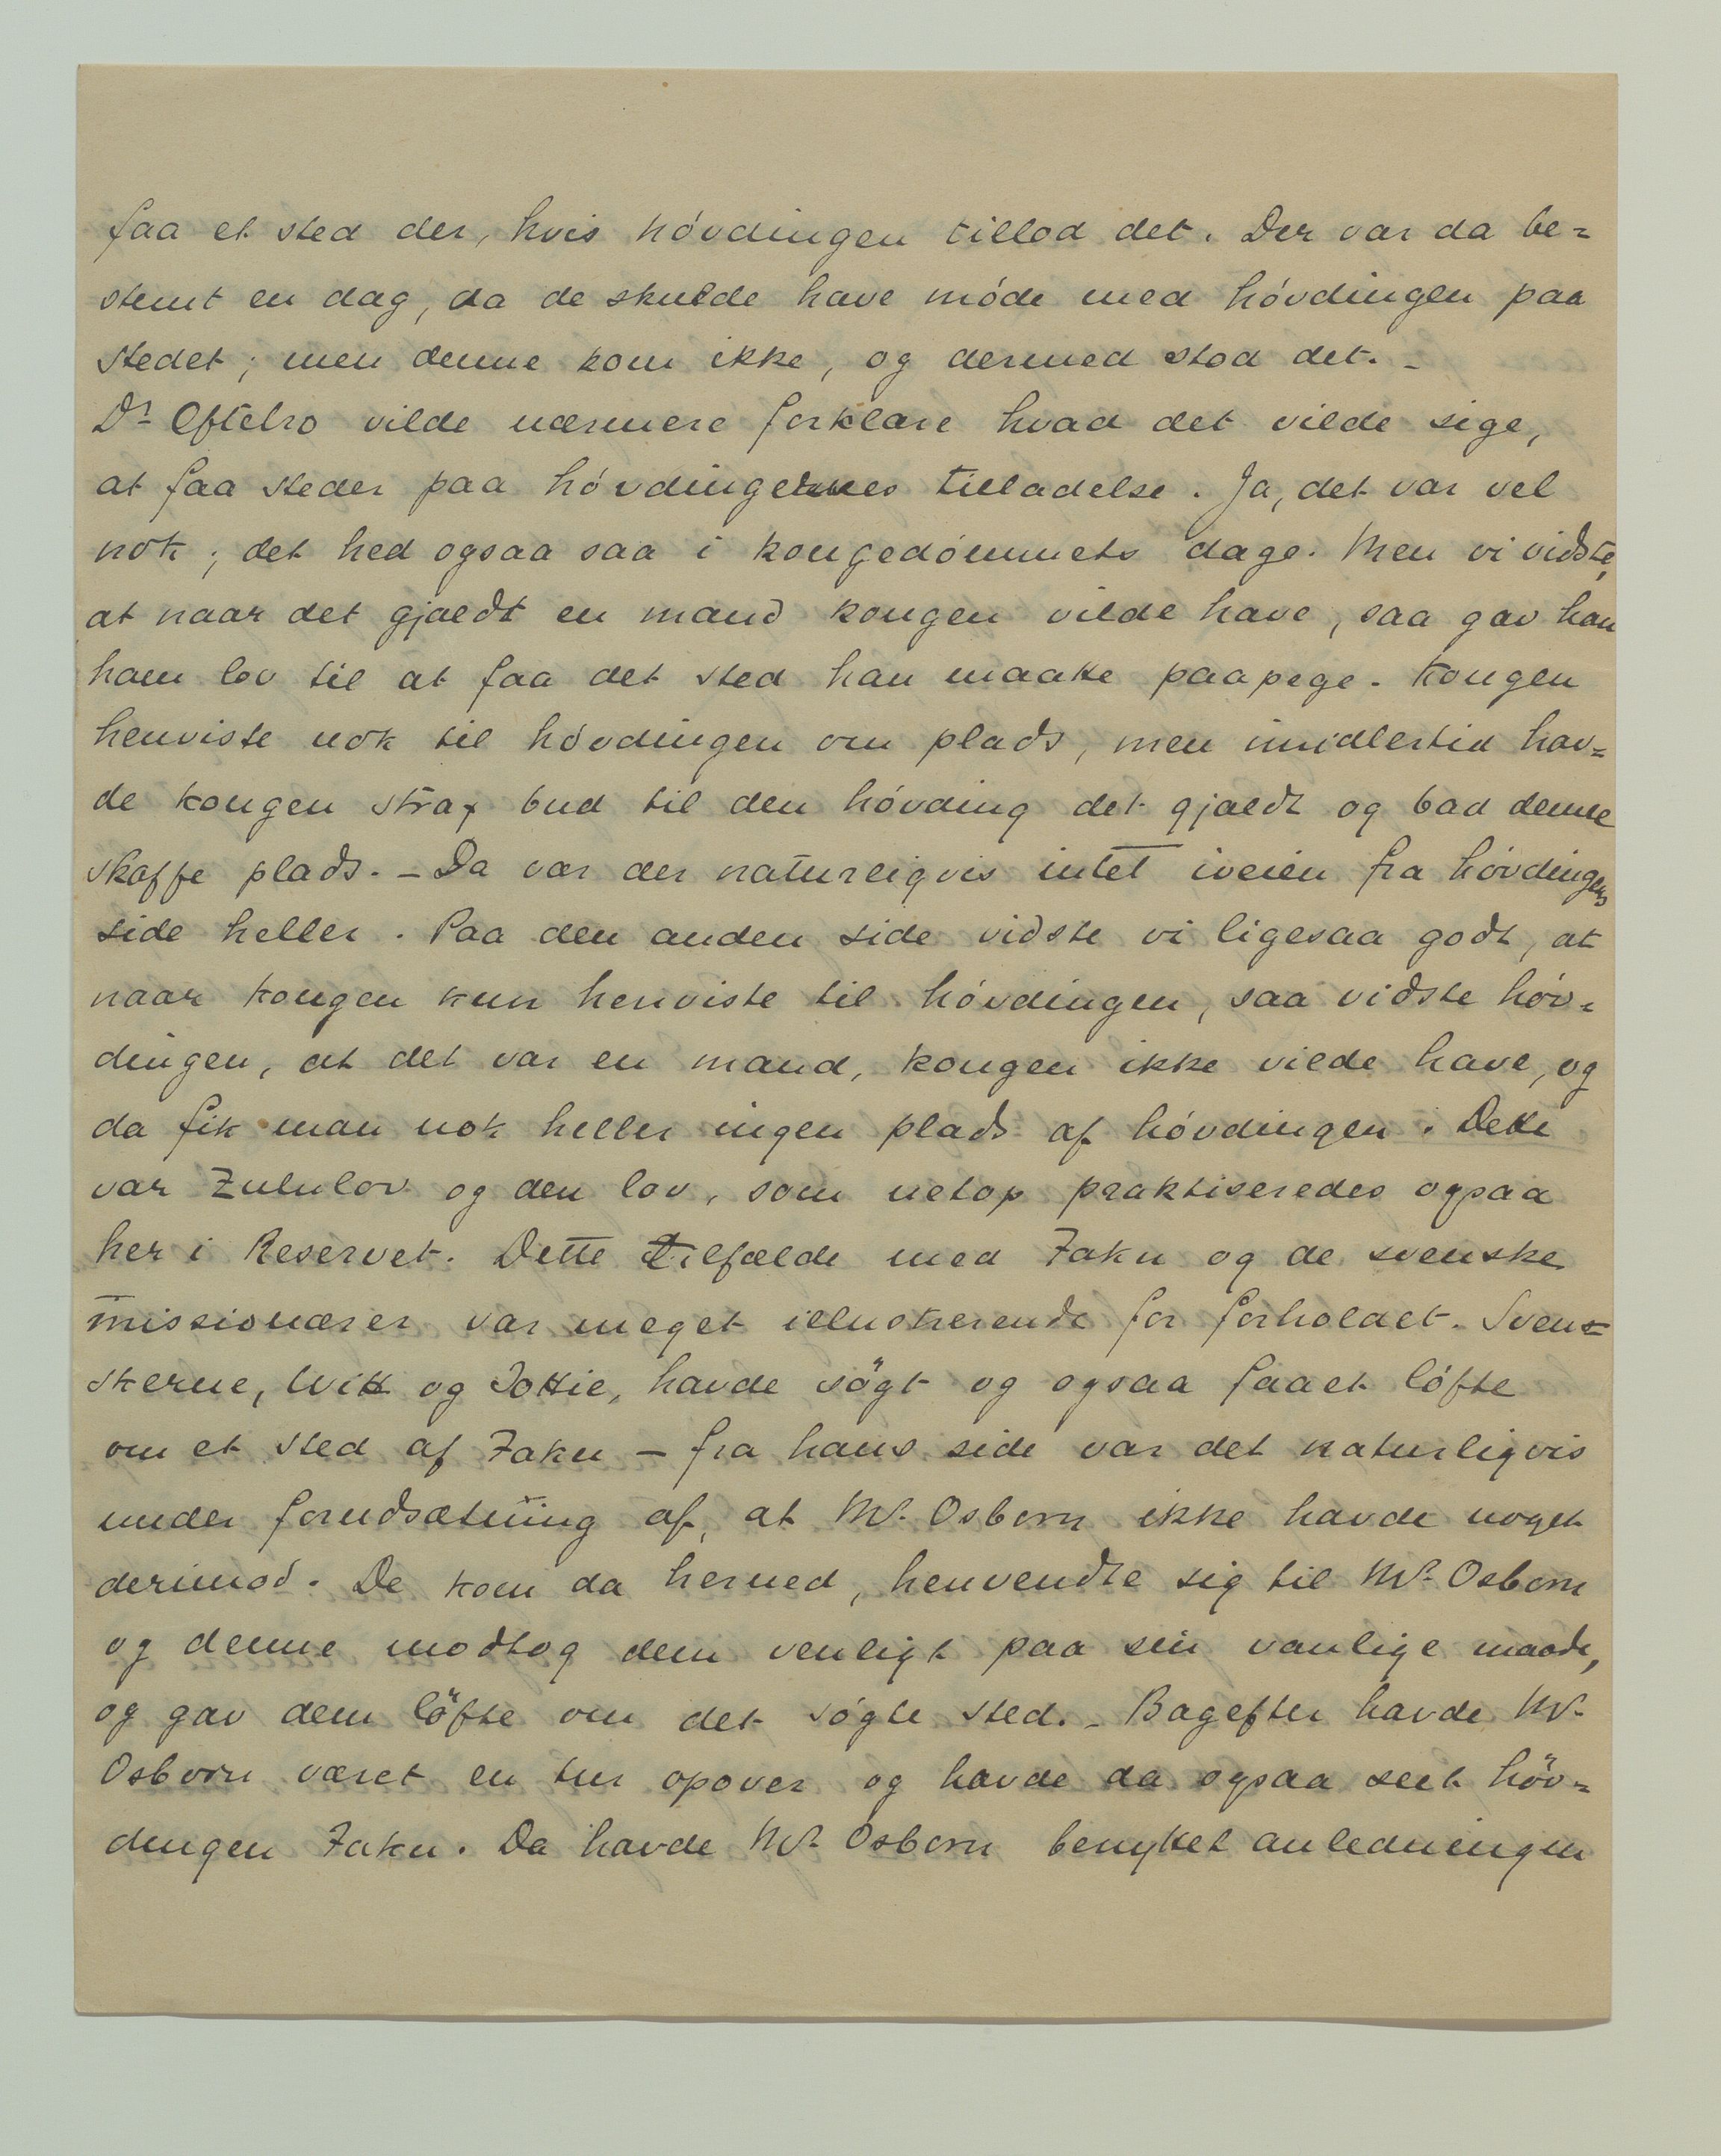 faa et sted der, hvis hóvdingen tillod det. Der var da be=
stemt en dag, da de skulde have móde med hóvdingen paa
stedet; men denne kom ikke, og dermed stod det. –
Dr Oftebro vilde nærmere forklare hvad det vilde sige,
at faa steder paa hóvdingernes tilladelse. Ja, det var vel
nok; det hed ogsaa saa i kongedómmets dage. Men vi vidste,
at naar det gjaldt en mand kongen vilde have, saa gav han
ham lov til at faa det sted han maatte paapege. Kongen
henviste nok til hóvdingen om plads, men imidlertid hav=
de kongen strax bud til den hóvding det gjaldt og bad denne
skaffe plads. – Da var der naturligvis intet iveien fra hóvdingens
side heller. Paa den anden side vidste vi ligesaa godt, at
naar kongen kun henviste til hóvdingen, saa vidste hóv=
dingen, at det var en mand, kongen ikke vilde have, og
da fik man nok heller ingen plads af hóvdingen. Dette
var Zululov og den lov, som netop praktiseredes ogsaa
her i Reservet. Dette tilfælde med Faku og de svenske
missionærer var meget illustrerende for forholdet. Sven=
skerne, Witt og Jottie, havde sögt og ogsaa faaet lófte
om et sted af Faku – fra hans side var det naturligvis
under forudsætning af, at Mr. Osborn ikke havde noget
derimod. De kom da herned, henvendte sig til Mr. Osborn
og denne modtog dem venligt paa sin vanlige maade,
og gav dem löfte om det sógte sted. – Bagefter havde Mr.
Osborn været en tur opover og havde da ogsaa seet höv=
dingen Faku. Da havde Mr. Osborn benyttet anledningen